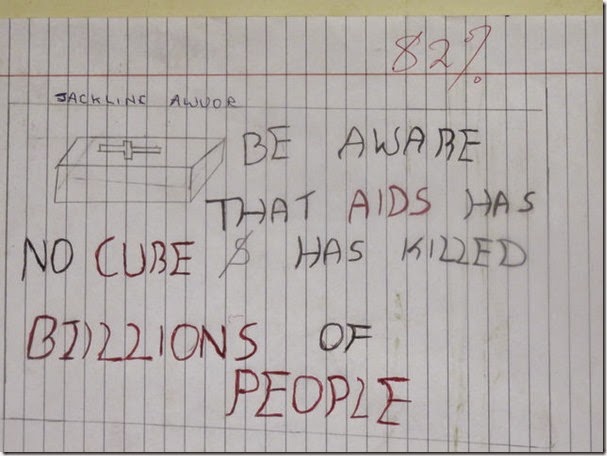 82%
JACKLINE AWUOR
BE AWARE
THAT AIDS HAS
NO CUBE & HAS KILLED
BIILLIONS OF
PEOPLE